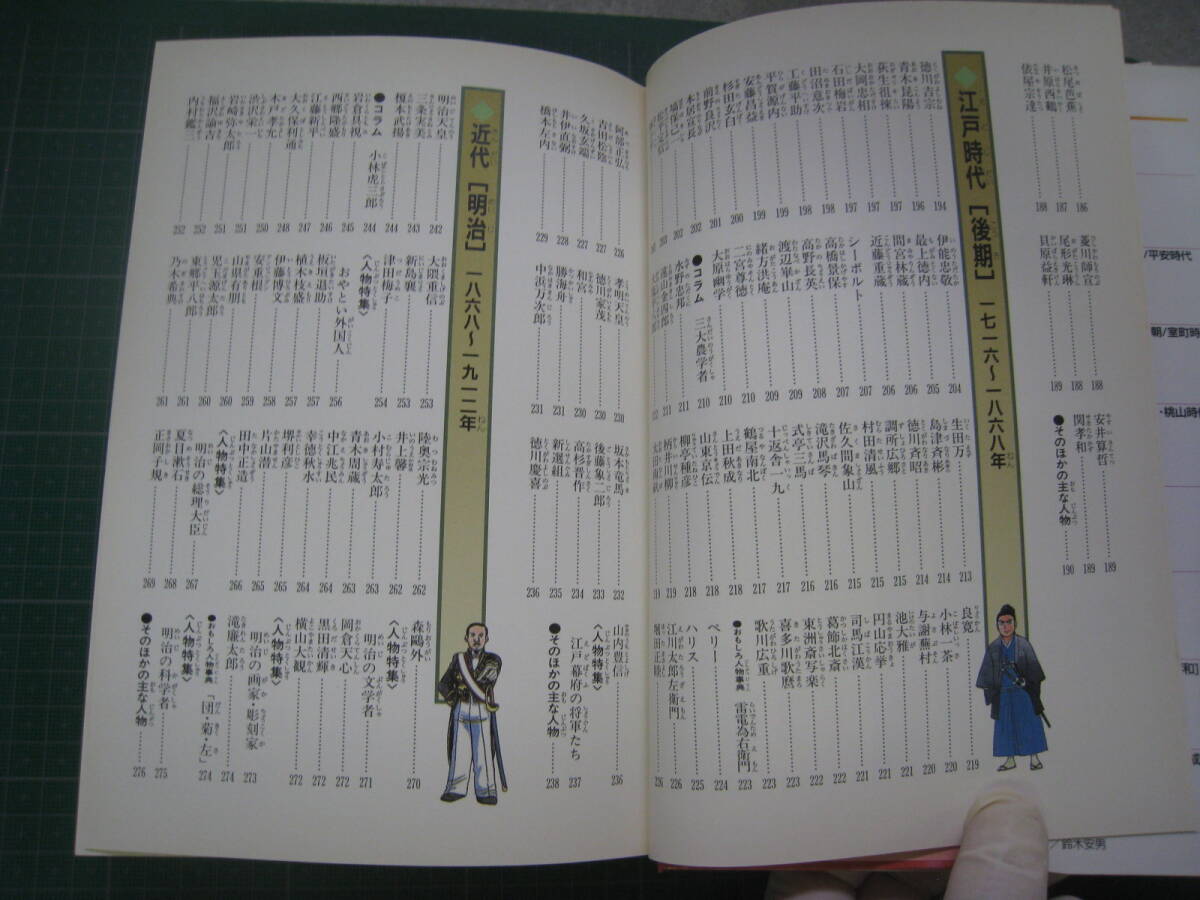 松尾芭蕉 186
井原西鶴 187
俵屋宗達 188
菱川師宣 188
尾形光琳 188
貝原益軒 189
安井算哲 189
関孝和 189
●そのほかの主な人物 190
◆江戸時代［後期］ 一七一六〜一八六八年
徳川吉宗 194
青木昆陽 196
荻生徂徠 197
大岡忠相 197
石田梅岩 198
田沼意次 198
工藤平助 199
平賀源内 199
安藤昌益 200
杉田玄白 200
前野良沢 201
本居宣長 202
塙保己一 202
伊能忠敬 204
最上徳内 205
間宮林蔵 206
近藤重蔵 206
シーボルト 207
高橋景保 207
高野長英 208
渡辺崋山 209
緒方洪庵 209
二宮尊徳 210
大原幽学 210
●コラム 三大農学者 210
水野忠邦 211
遠山金四郎 211
生田万 213
島津斉彬 214
徳川斉昭 214
調所広郷 215
村田清風 215
佐久間象山 215
滝沢馬琴 216
式亭三馬 216
十返舎一九 217
鶴屋南北 217
上田秋成 217
山東京伝 218
柳亭種彦 218
柄井川柳 218
良寛 219
小林一茶 220
与謝蕪村 220
池大雅 221
円山応挙 221
司馬江漢 221
葛飾北斎 222
東洲斎写楽 222
喜多川歌麿 223
歌川広重 223
●おもしろ人物事典 雷電為右衛門 223
ペリー 224
ハリス 225
江川太郎左衛門 226
堀田正睦 226
阿部正弘 226
吉田松陰 227
久坂玄瑞 227
井伊直弼 228
橋本左内 229
孝明天皇 230
徳川家茂 230
和宮 230
勝海舟 231
中浜万次郎 231
坂本竜馬 232
後藤象二郎 233
高杉晋作 234
新選組 235
徳川慶喜 236
山内豊信 236
〈人物特集〉
江戸幕府の将軍たち 237
●そのほかの主な人物 238
◆近代［明治］ 一八六八〜一九一二年
明治天皇 242
三条実美 243
榎本武揚 244
●コラム 小林虎三郎 244
岩倉具視 245
西郷隆盛 246
江藤新平 247
大久保利通 247
木戸孝允 248
渋沢栄一 250
岩崎弥太郎 251
福沢諭吉 251
内村鑑三 252
大隈重信 253
新島襄 253
津田梅子 254
〈人物特集〉
おやとい外国人 256
板垣退助 257
植木枝盛 257
伊藤博文 258
安重根 259
山県有朋 260
児玉源太郎 260
東郷平八郎 261
乃木希典 261
陸奥宗光 262
井上馨 262
小村寿太郎 263
青木周蔵 263
中江兆民 264
幸徳秋水 264
堺利彦 265
片山潜 265
田中正造 266
〈人物特集〉
明治の総理大臣 267
夏目漱石 268
正岡子規 269
森鷗外 270
〈人物特集〉
明治の文学者 271
岡倉天心 272
黒田清輝 272
横山大観 272
〈人物特集〉
明治の画家・彫刻家 273
滝廉太郎 274
●おもしろ人物事典 「団・菊・左」 274
〈人物特集〉
明治の科学者 275
●そのほかの主な人物 276
/平安時代
朝/室町時
・桃山時
和]
/鈴木安男